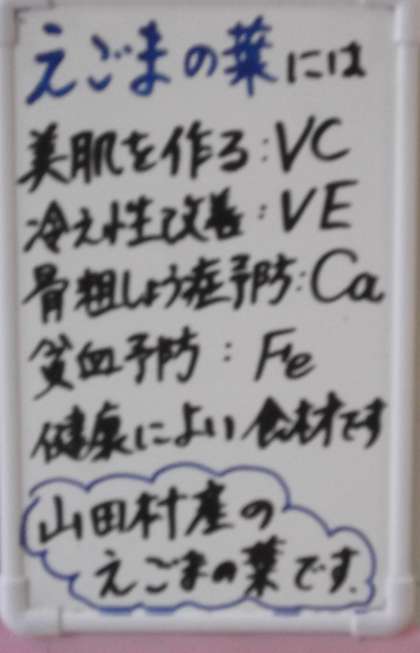 えごまの葉には
美肌を作る:VC
冷え性改善:VE
骨粗しょう症予防:Ca
貧血予防:Fe
健康によい食材です
山田村産の
えごまの葉です.